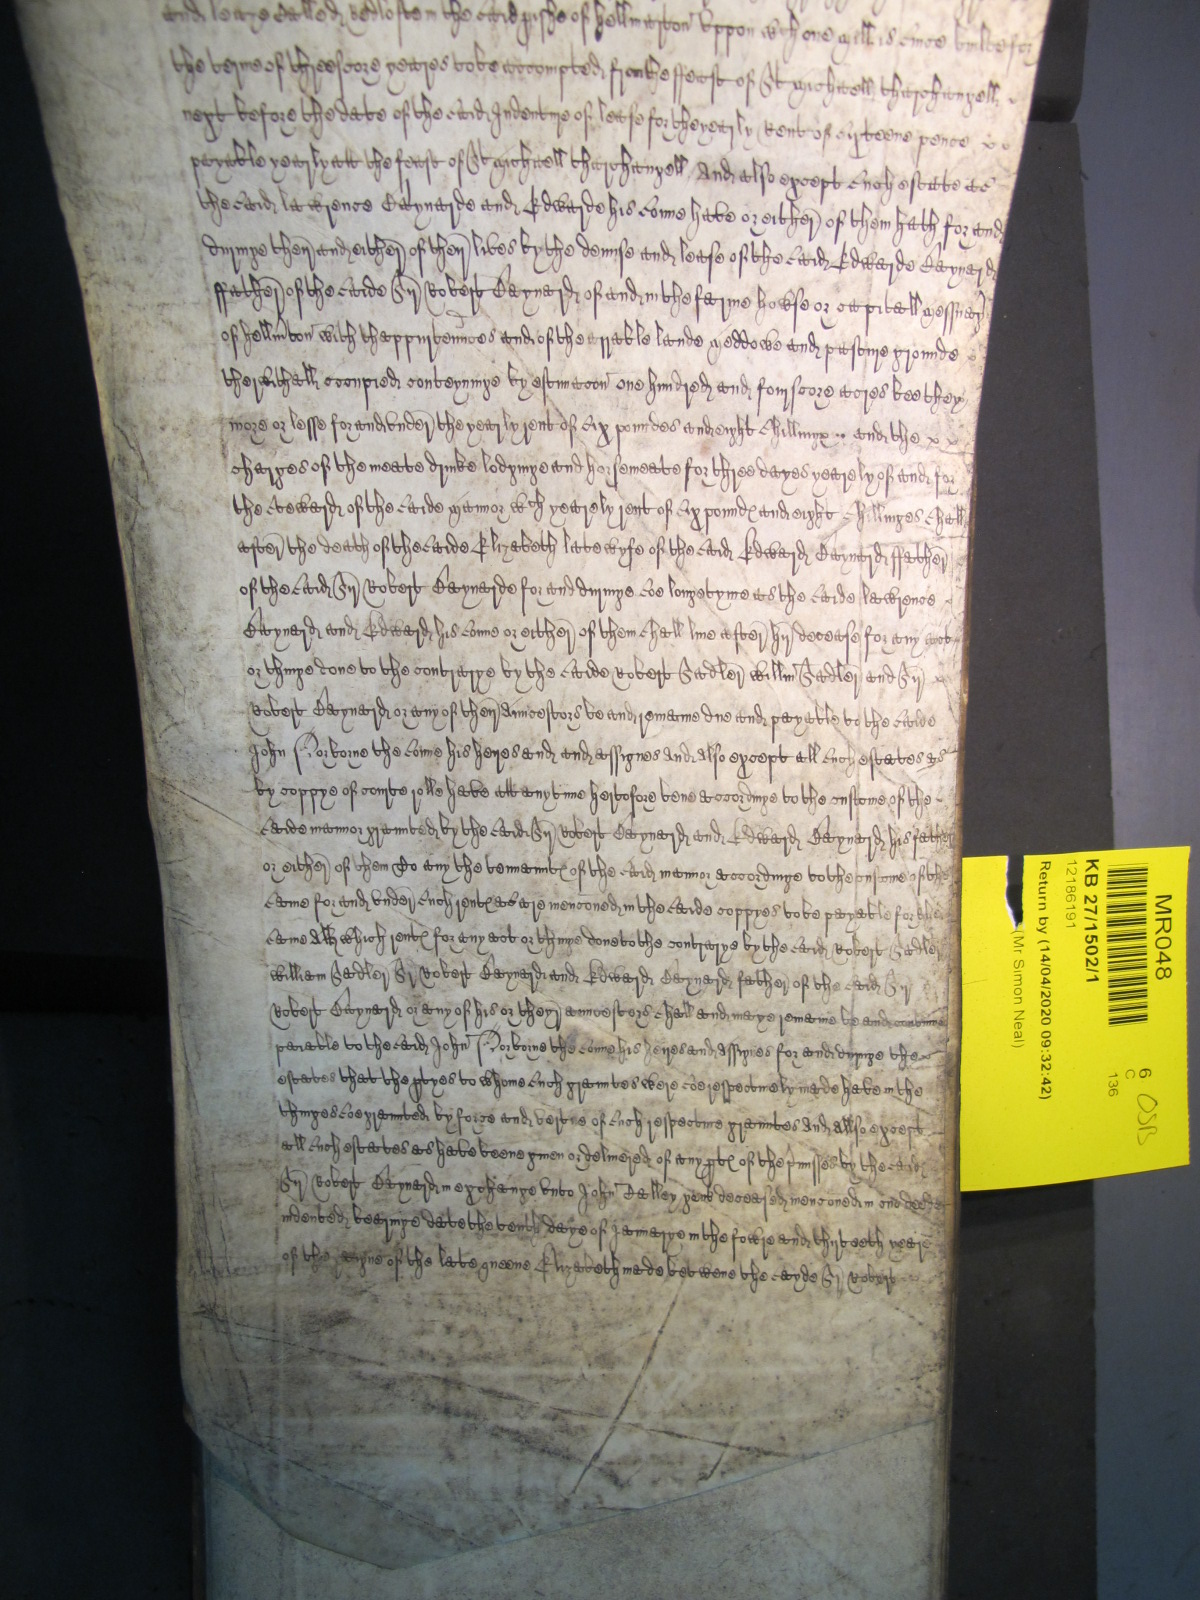 and leaze called Redlofte in the said pishe of hellmarton uppon wch one mill is since builte for
the terme of threescore yeares to be accompted from the ffeast of St Michaell tharchangell
next before the date of the said Indenture of lease for the yearly Rent of eighteene pence
payable yearly att the feast of St Michaell tharchangell And also except such estate as
the said Lawrence Baynarde and Edwarde his sonne have or either of them hath for and
duringe their and either of their lives by the demise and lease of the said Edwarde Baynard
ffather of the saide Sr Robert Baynard of and in the farme howse or capitall messuage
of hellmton with thappurtennces and of the arrable lande meddowe and pasture grounde
therwithall occupied conteyninge by estimacon one hundred and fourscore acres bee they
more or lesse for and under the yearly rent of six poundes and eight shillings and the
charges of the meate drinke lodginge and horsemeate for three dayes yearely of and for
the steward of the saide mannor wch yearely rent of six pounds and eight shillinges shall
after the death of the saide Elizabeth late wyfe of the said Edward Baynard ffather
of the said Sr Robert Baynarde for and duringe soe longe tyme as the saide lawrence
Baynard and Edward his sonne or either of them shall live after hir decease for any act
or thinge done to the contrarye by the saide Robert Sadler Willm Sadler and Sr
Robert Baynard or any of their auncestors be and remaine due and payable to the saide
John Norborne the sonne his heyres and assignes And also except all such estates as
by coppye of courte rolle have att any time heretofore bene accordinge to the custome of the
saide mannor graunted by the said Sr Robert Baynard and Edward Baynard his father
or either of them to any the tennants of the said mannor accordinge to the custome of the
same for and under such rents as are menconed in the saide coppyes to be payable for the
same All which rents for any act or thinge done to the contrarye by the said Robert Sadler
William Sadler Sr Robert Baynard and Edward Baynard father of the said Sr
Robert Baynard or any of his or their auncestors shall and maye remaine be and continue
paiable to the said John Norborne the sonne his heyres and assignes for and duringe the
estates that the ptyes to whome such grauntes were soe respectively made have in the
thinges soe graunted by force and vertue of such respective grauntes And allso except
all such estates as have beene given or delivered of any pts of the pmisses by the said
Sr Robert Baynard in exchange unto John Dalley gent deceased menconed in one deede
indented bearinge date the tenth daye of Januarye in the fowre and thirteeth yeare
of the raigne of the late queene Elizabeth made betwene the sayde Sr Robert
MR048
KB 27/1502/1
12186191
Return by (14/04/2020 09:32:42)
(Mr Simon Neal)
6
C
136
OSB